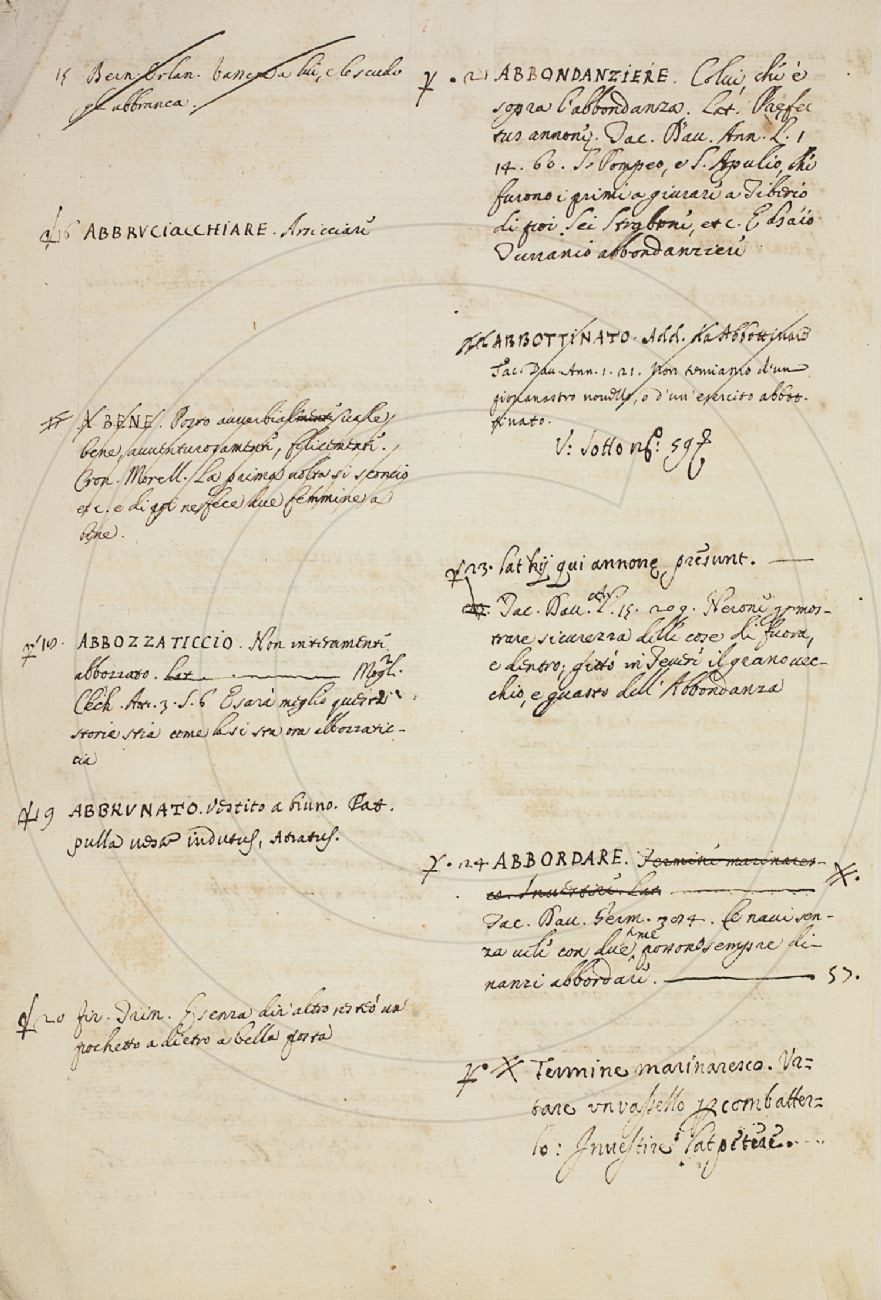 15 Bern. Orlan. vassene a lui, e lo scudo
gli abbranca.
16 ABBRVCIACCHIARE. Arsicciare
A BENE. Posto avverbialmente vale
bene, avventurosamente, felicemente.
Cron. Morell. La prima volta si sconciò
etc. e di poi ne fece due femmine a
bene.
18. ABBOZZATICCIO. Non interamente
abbozzato. Lat.
Cecch. 3. S. 6 E sarà meglio
storia stia come la si sta ora abbozzatic-
cia
19 ABBRVNATO. Vestito a bruno. Lat.
pulla veste indutus, Atratus.
20 Fir. Trin. E senza dir altro restò un
pochetto a dietro a bella posta
21 ABBONDANZIERE. Colui, che è
sopra l'abbondanza. Lat. Praefec
tus annonę. Tac. Dav. Ann. L. 1
14. S. Pompeo, e S. Apulio, che
furono i primi a giurare a Tiberio
di poi Sei Strabone, etc. E
Turranio abbondanziere
ABBOTTINATO. Add. Da Abbottinare
Tac. Dav. Ann. 1. 21. Non temiamo d'un
giovanastro novello, o d'un'esercito abbot-
tinato.
V: sotto nº: 59
23. Lat hij qui annonę presunt.
Tac. Dav. An. L. 15. 209. Nerone p mos-
trare sicurezza delle cose di fuora,
e dentro; gittò in Tevere il grano vec-
chio, e guasto dell'Abbondanza
24 ABBORDARE. Termine marinares-
co. Investire. Lat
Tac. Dav. Germ. 374. Le navi sen-
za vele con due prue possono sempre di-
nanzi abbordare. 57.
Termine marinaresco. Vr=
tare vn vassello p combatter=
lo: Jnvestire Lat petere.